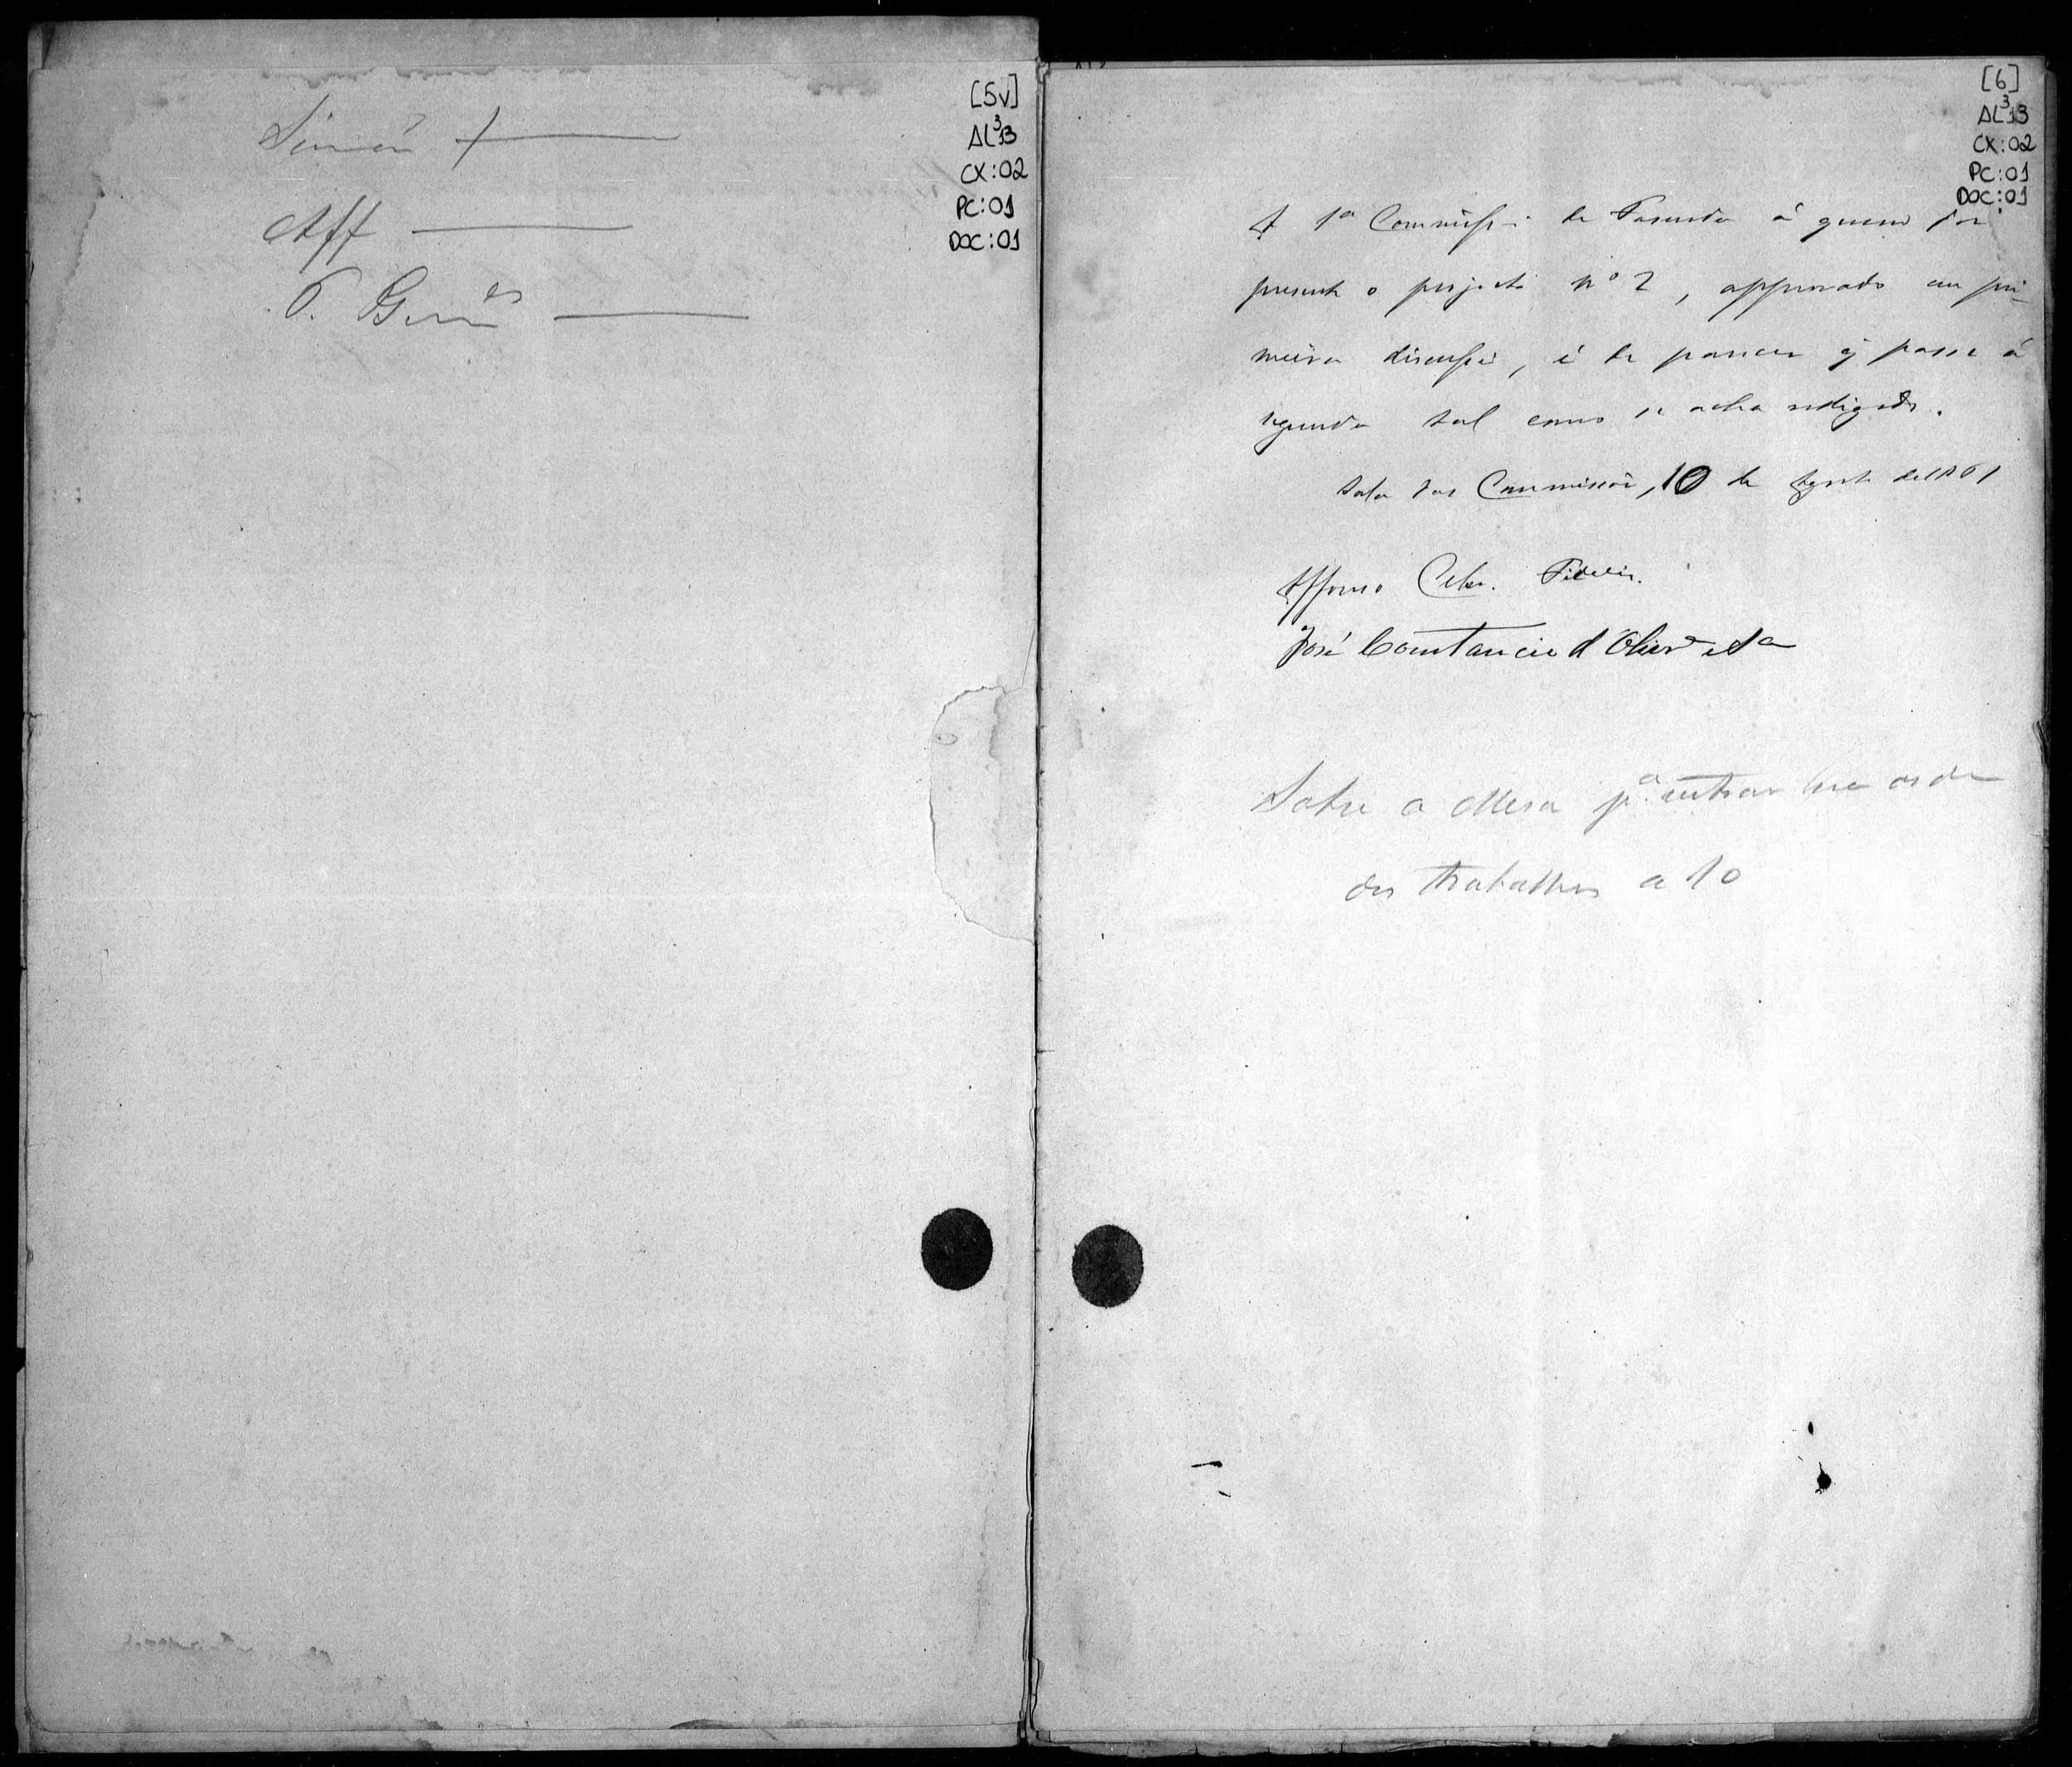 [5v]
AL³13
CX:02
PC:01
DOC:01
Aff
[6]
AL³13
CX:02
PC:01
DOC:01
A 1ª Commissão de Fasenda á quem foi
presente o projecto nº 2, approvado em pri-
meira discussão, é de parecer q̃ passe á
segunda tal como se acha redigido.
Sala das Commissões, 10 de Agosto de 1861
Affonso Celso. Fidelis.
José Constancio d'Olivrª e Sª
Sobre a Mesa pª entrar na ordem
dos trabalhos a 10